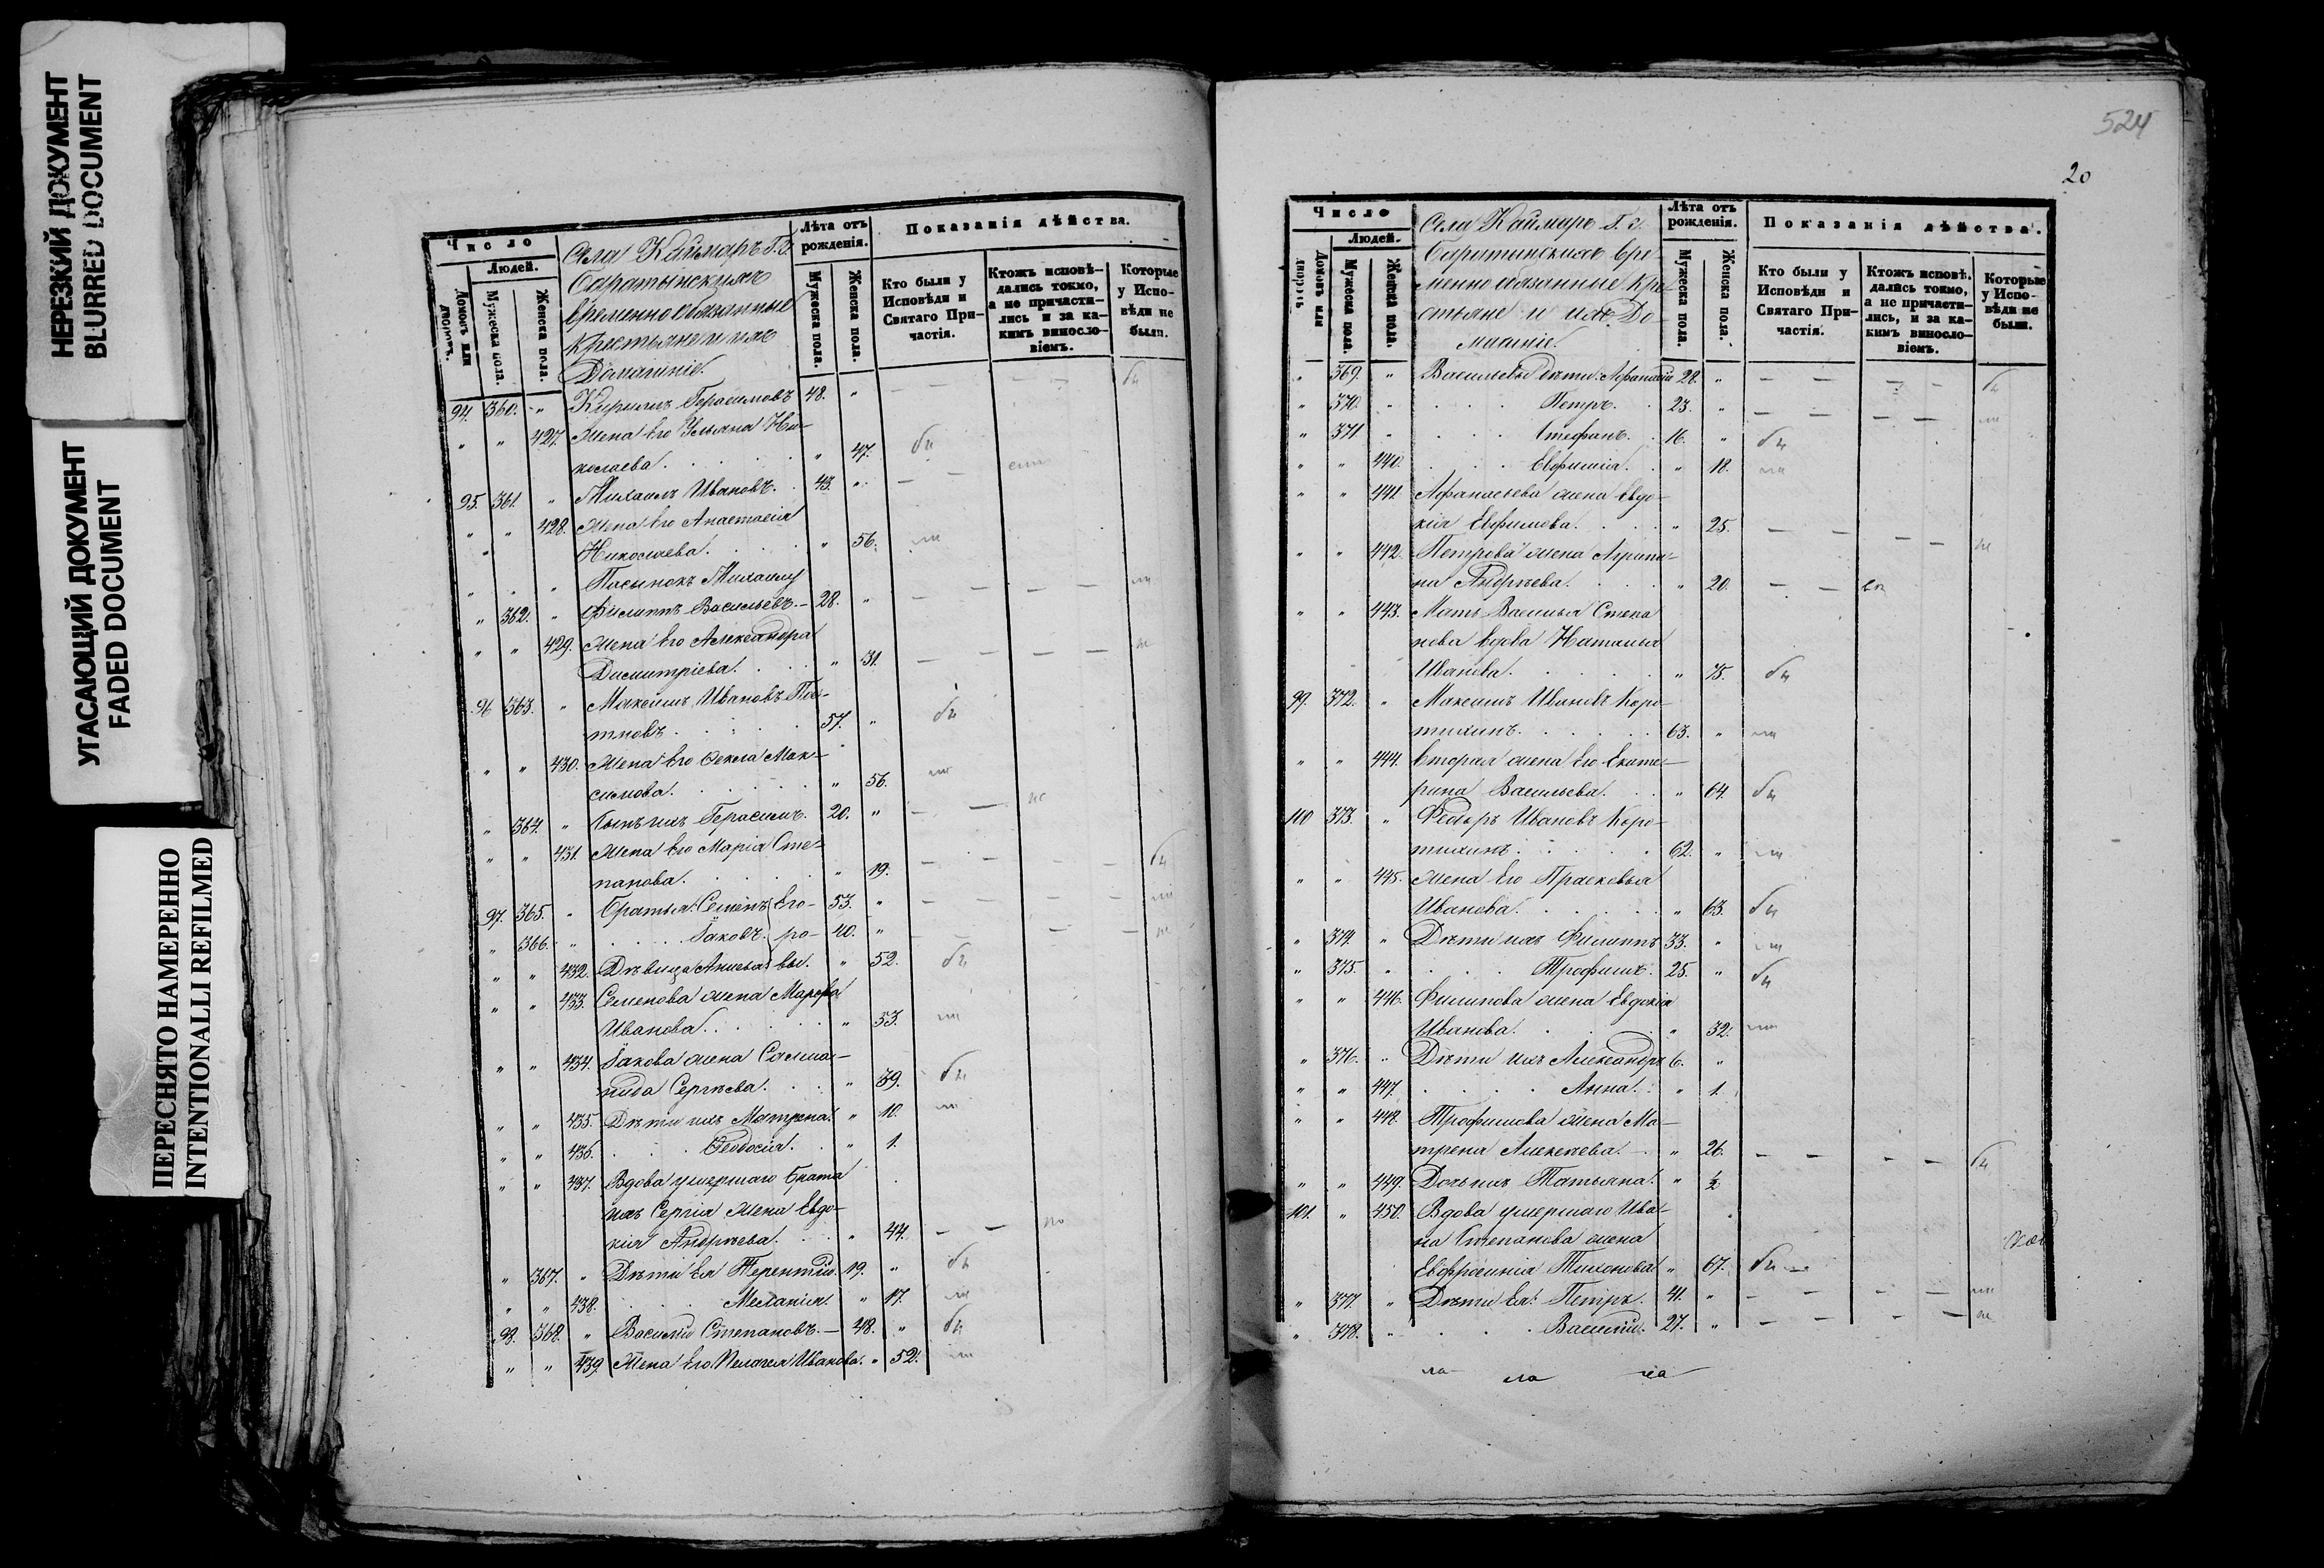 НЕРЕЗКИЙ ДОКУМЕНТ
BLURRED DOCUMENT
УГАСАЮЩИЙ ДОКУМЕНТ
FADED DOCUMENT
ПЕРЕСНЯТО НАМЕРЕННО
INTENTIONALLI REFILMED
Число
Людей.
Домовъ или дворовъ.
Мужеска пола.
Женска пола.
Села Каймаръ Г. г.
Баратынскихъ
временнообязанные
крестьяне и ихъ
Домашніе.
Лѣта отъ рожденія.
Мужеска пола.
Женска пола.
Показанія дѣйства.
Кто были у Исповѣди и Святаго Причастія.
Ктожъ исповѣ-
дались токмо,
а не причасти-
лись и за ка-
кимъ виносло-
віемъ.
Которые
у Испо-
вѣди не
были.
94. 360. " Кирилъ Герасимовъ 48. "
" " 427. Жена его Ульяна Ни-
колаева. " 47.
95. 361. " Михаилъ Ивановъ. 43. "
" " 428. Жена его Анастасія
Николаева. " 56.
" " " Пасынокъ Михаилу
" 362. " Филиппъ Васильевъ. 28. "
" " 429. Жена его Александра
Димитріева. " 31.
96 363. " Максимъ Ивановъ
57. "
" " 430. Жена его Фекла Мак-
симова. " 56.
" 364. " Сынъ ихъ Герасимъ. 20. "
" " 431. Жена его Марія Сте-
панова. " 19.
97. 365. " Братья: Семенъ Его- 53. "
" 366. " Іаковъ. ро- 40. "
" " 432. Дѣвица вы. " 52.
" " 433. Семенова жена Марфа
Иванова. " 53.
" " 434. Іакова жена Соломо-
нида Сергѣева. " 39.
" " 435. Дѣти ихъ Матрена. " 10.
" " 436. Феодосія. " 1.
" " 437. Вдова умершаго брата
ихъ Сергія жена Евдо-
кія Андреева. " 44.
" 367. " Дѣти ея Терентій. 19. "
" " 438. Меланія. " 17.
98. 368. " Василій Степановъ. 48. "
" " 439. Жена его Пелагея Иванова. " 52.
524
20
Число
Людей.
Домовъ или дворовъ
Мужеска пола.
Женска пола.
Села Каймаръ Г. г.
Баратынскихъ вре-
менно обязанные кре-
стьяне и ихъ До-
машніе.
Лѣта отъ рожденія.
Мужеска пола.
Женска пола.
Показанія дѣйства.
Кто были у Исповѣди и Святаго Причастія.
Ктожъ исповѣ.
дались токмо,
а не причасти-
лись, и за ка-
кимъ виносло-
віемъ.
Которые
у Испо-
вѣди не
были.
" 369. " Васильевы дѣти: Афанасій 28. "
" 370. " Петръ. 23. "
" 371 " Стефанъ. 16. "
" " 440. Евфимія. " 18.
" " 441. Афанасьева жена Евдо-
кія Евфимова. " 25.
" " 442. Петрова жена Агрипи-
на Андреева. " 20.
" " 443. Мать Василья Степа
нова вдова Наталья
Иванова. " 75.
99. 372. " Максимъ Ивановъ Коро-
тихинъ. 63. "
" " 444. Вторая жена его Екате-
рина Васильева. " 64.
100 373. " Федоръ Ивановъ Коро-
тихинъ. 62. "
" " 445. Жена его Прасковья
Иванова. " 63.
" 374. " Дѣти ихъ Филиппъ 33. "
" 375. " Трофимъ. 25. "
" " 446. Филипова жена Евдокія
Иванова. " 32.
" 376. " Дѣти ихъ Александръ 6. "
" " 447. Анна. " 1.
" " 448. Трофимова жена Ма-
трена Алексеева. " 26.
" " 449. Дочь ихъ Татьяна. " ½
101. " 450. Вдова умершаго Ива-
на Степанова жена
Евфросинія Тихонова " 67.
" 377. " Дѣти ея: Петръ. 41. "
" 378. " Василій. 27. "